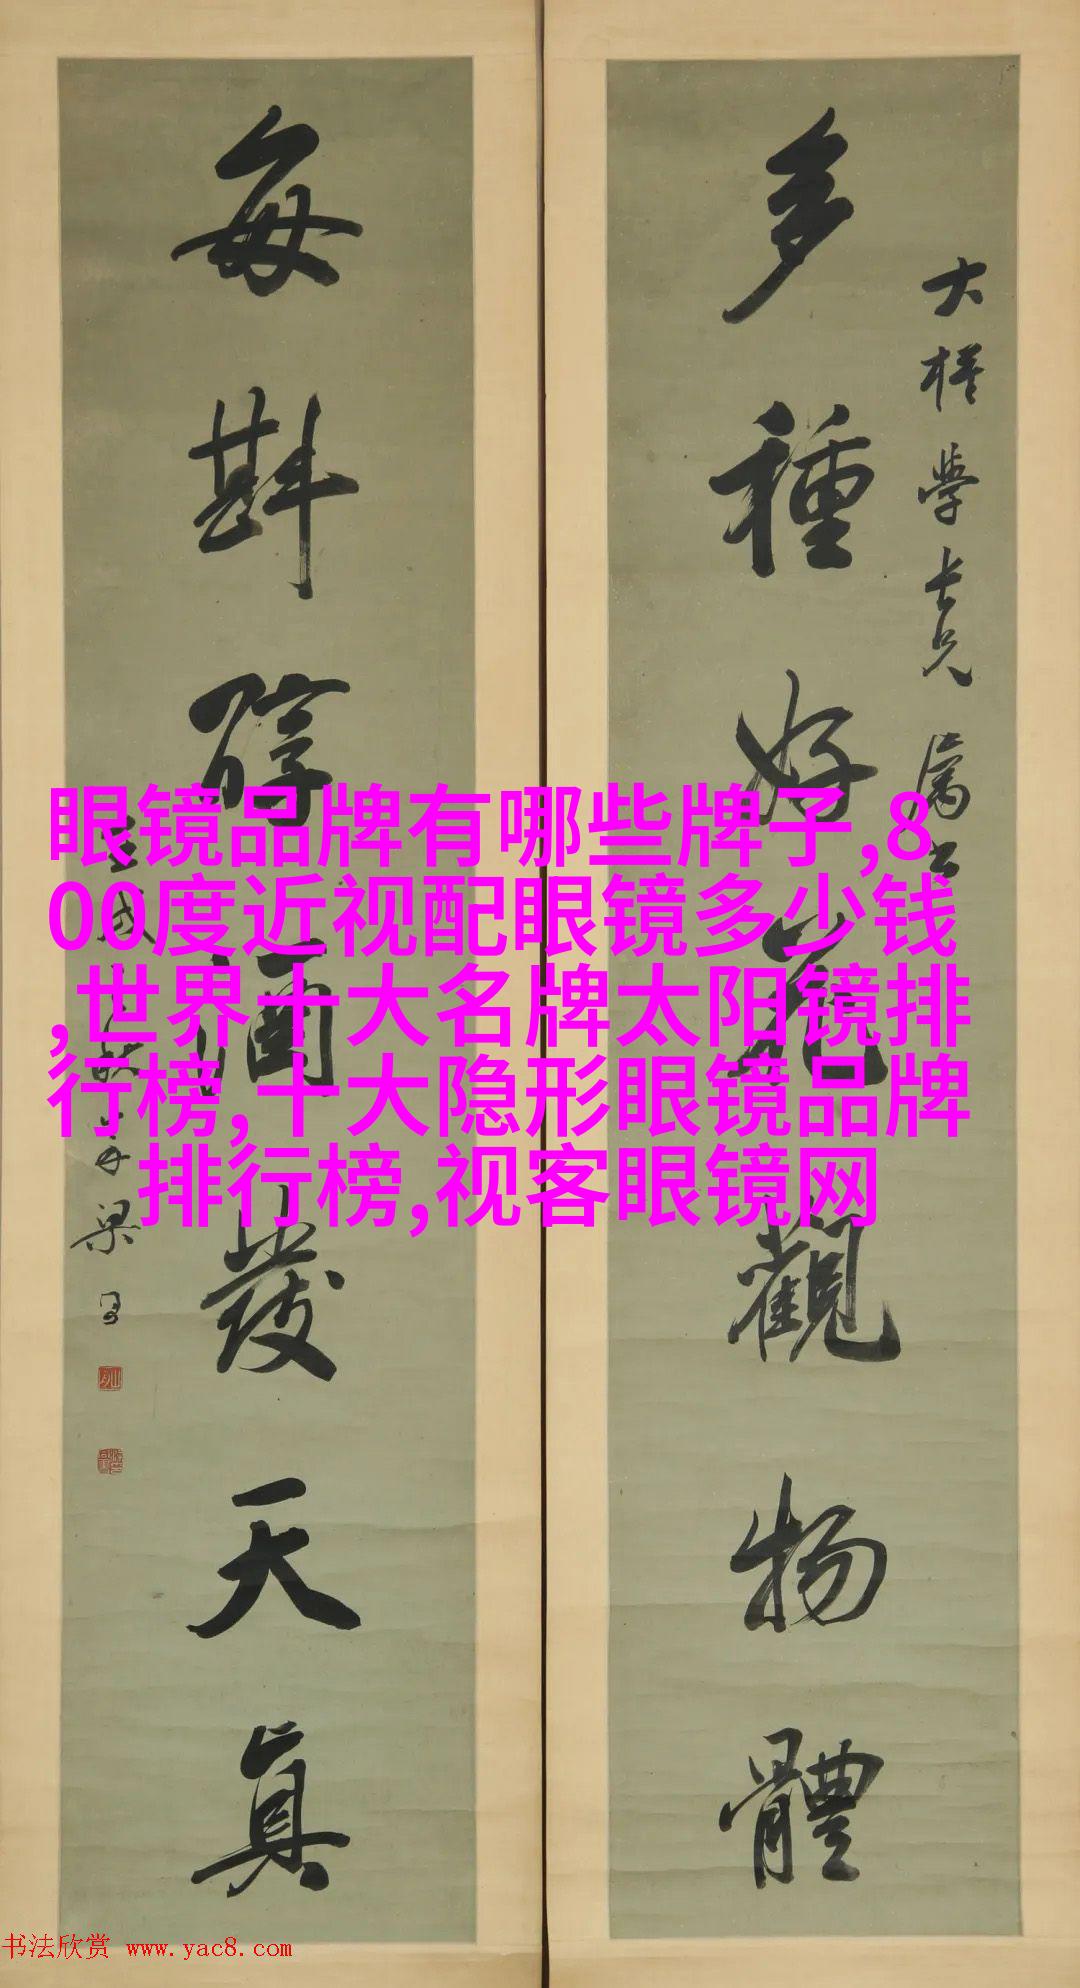 多種好花觀物體
大楳學長兄屬書
每斟醇酒發天真
眼镜品牌有哪些牌子,8
00度近视配眼镜多少钱
,世界十大名牌太阳镜排
行榜,十大隐形眼镜品牌
排行榜,视客眼镜网
书法欣赏 www.yac8.com